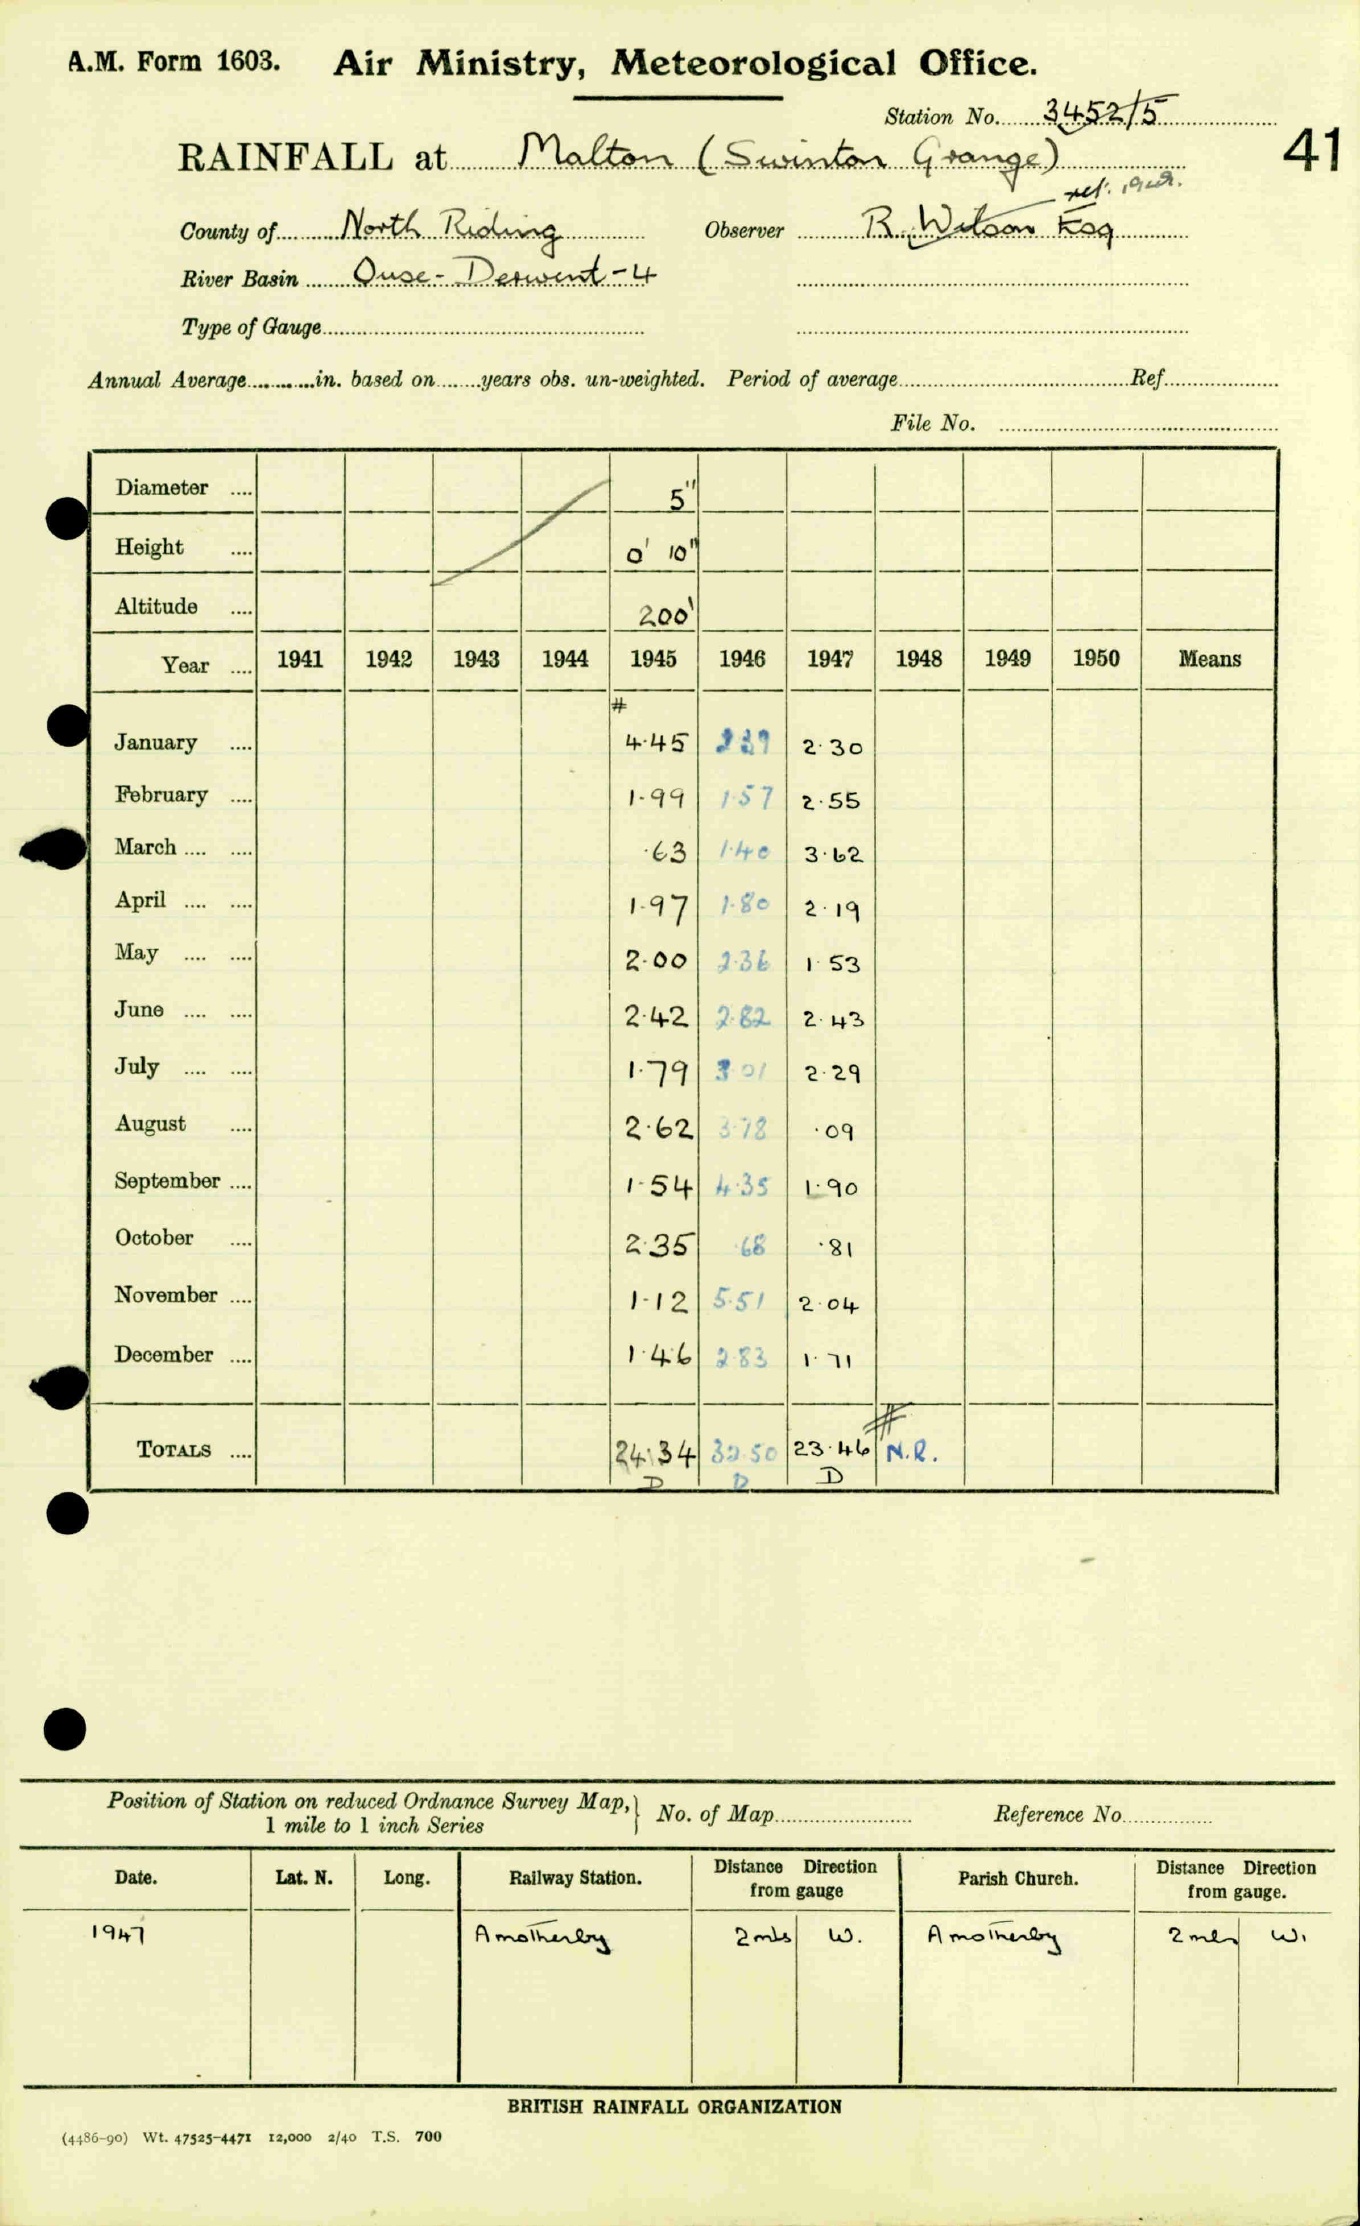 A.M. Form 1603. Air Ministry, Meteorological Office.
Station No. 3452/5
41
RAINFALL at Malton (Swinton Grange)
County of North Riding Observer R. Wilson Esq
River Basin Ouse - Derwent - 4
Type of Gauge
Annual Average in. based on years obs. un-weighted. Period of average Ref.
File No.
Diameter 5"
Height 0' 10"
Altitude 200'
Year 1941 1942 1943 1944 1945 1946 1947 1948 1949 1950 Means
#
January 4.45 2.39 2.30
February 1.99 1.57 2.55
March .63 1.40 3.62
April 1.97 1.80 2.19
May 2.00 2.36 1.53
June 2.42 2.82 2.43
July 1.79 3.01 2.29
August 2.62 3.78 .09
September 1.54 4.35 1.90
October 2.35 .68 .81
November 1.12 5.51 2.04
December 1.46 2.83 1.71
#
TOTALS 24.34 32.50 23.46 N.R.
D D D
Position of Station on reduced Ordnance Survey Map, } No. of Map Reference No.
1 mile to 1 inch Series
Date. Lat. N. Long. Railway Station. Distance Direction from gauge Parish Church. Distance Direction from gauge.
1947 Amotherby 2 mls W. Amotherby 2 mls W.
BRITISH RAINFALL ORGANIZATION
(4486-90) Wt. 47525-4471 12,000 2/40 T.S. 700